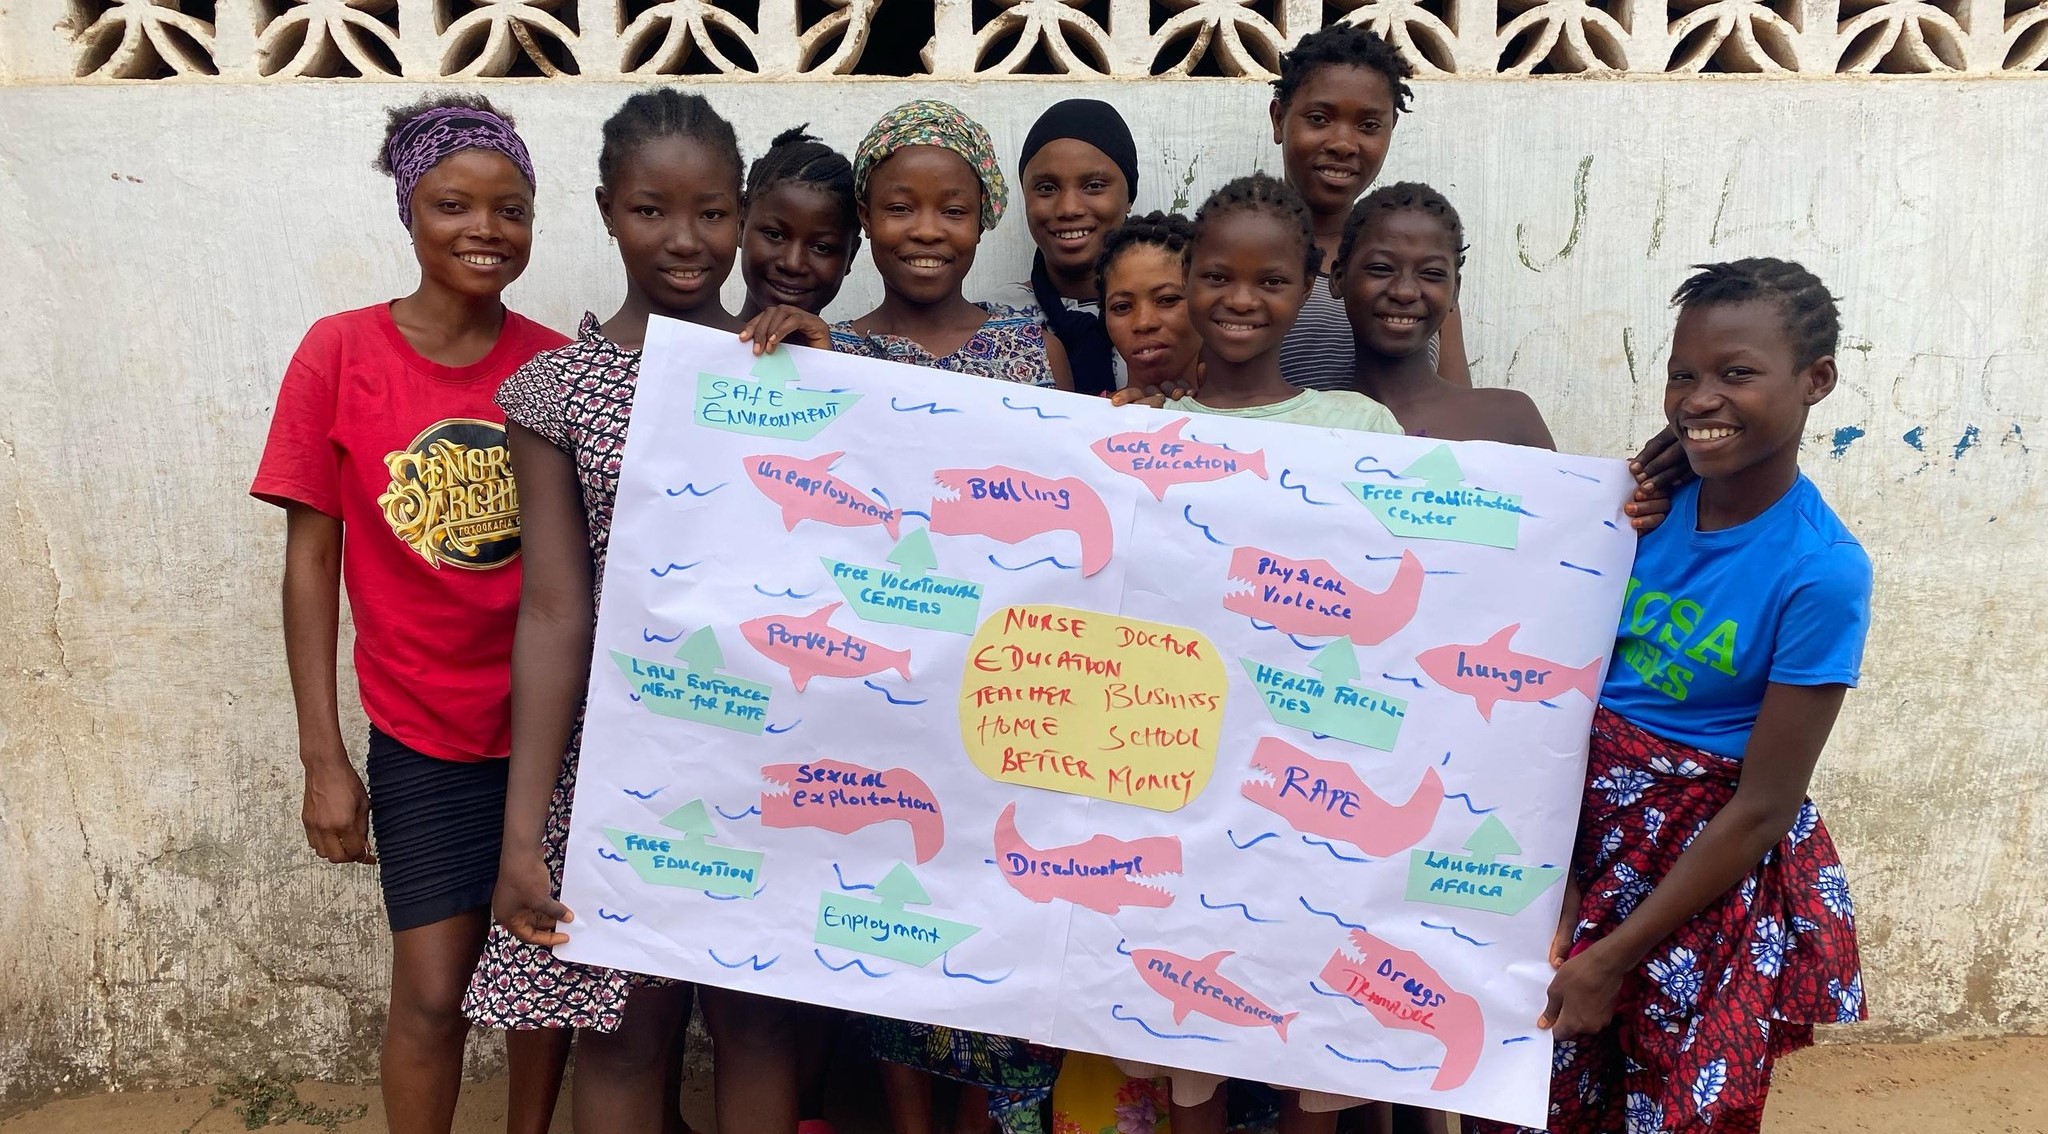 SAFE
ENVIRONMENT
Unemployment
Bulling
Lack OF
EDUCATION
Free reabilitation
center
Free VOCATIONAL
CENTERS
Physical
Violence
Porverty
LAW ENFORCE-
MENT for RAPE
NURSE DOCTOR
EDUCATION
TEACHER BUSINESS
HOME SCHOOL
BETTER MONEY
HEALTH FACILI-
TIES
hunger
Sexual
exploitation
RAPE
FREE
EDUCATION
Employment
Disadvantage
LAUGHTER
AFRICA
Maltreatment
Drougs
TRAMADOL
SEÑOR
MARCHI
FOTOGRAFIA
CSA